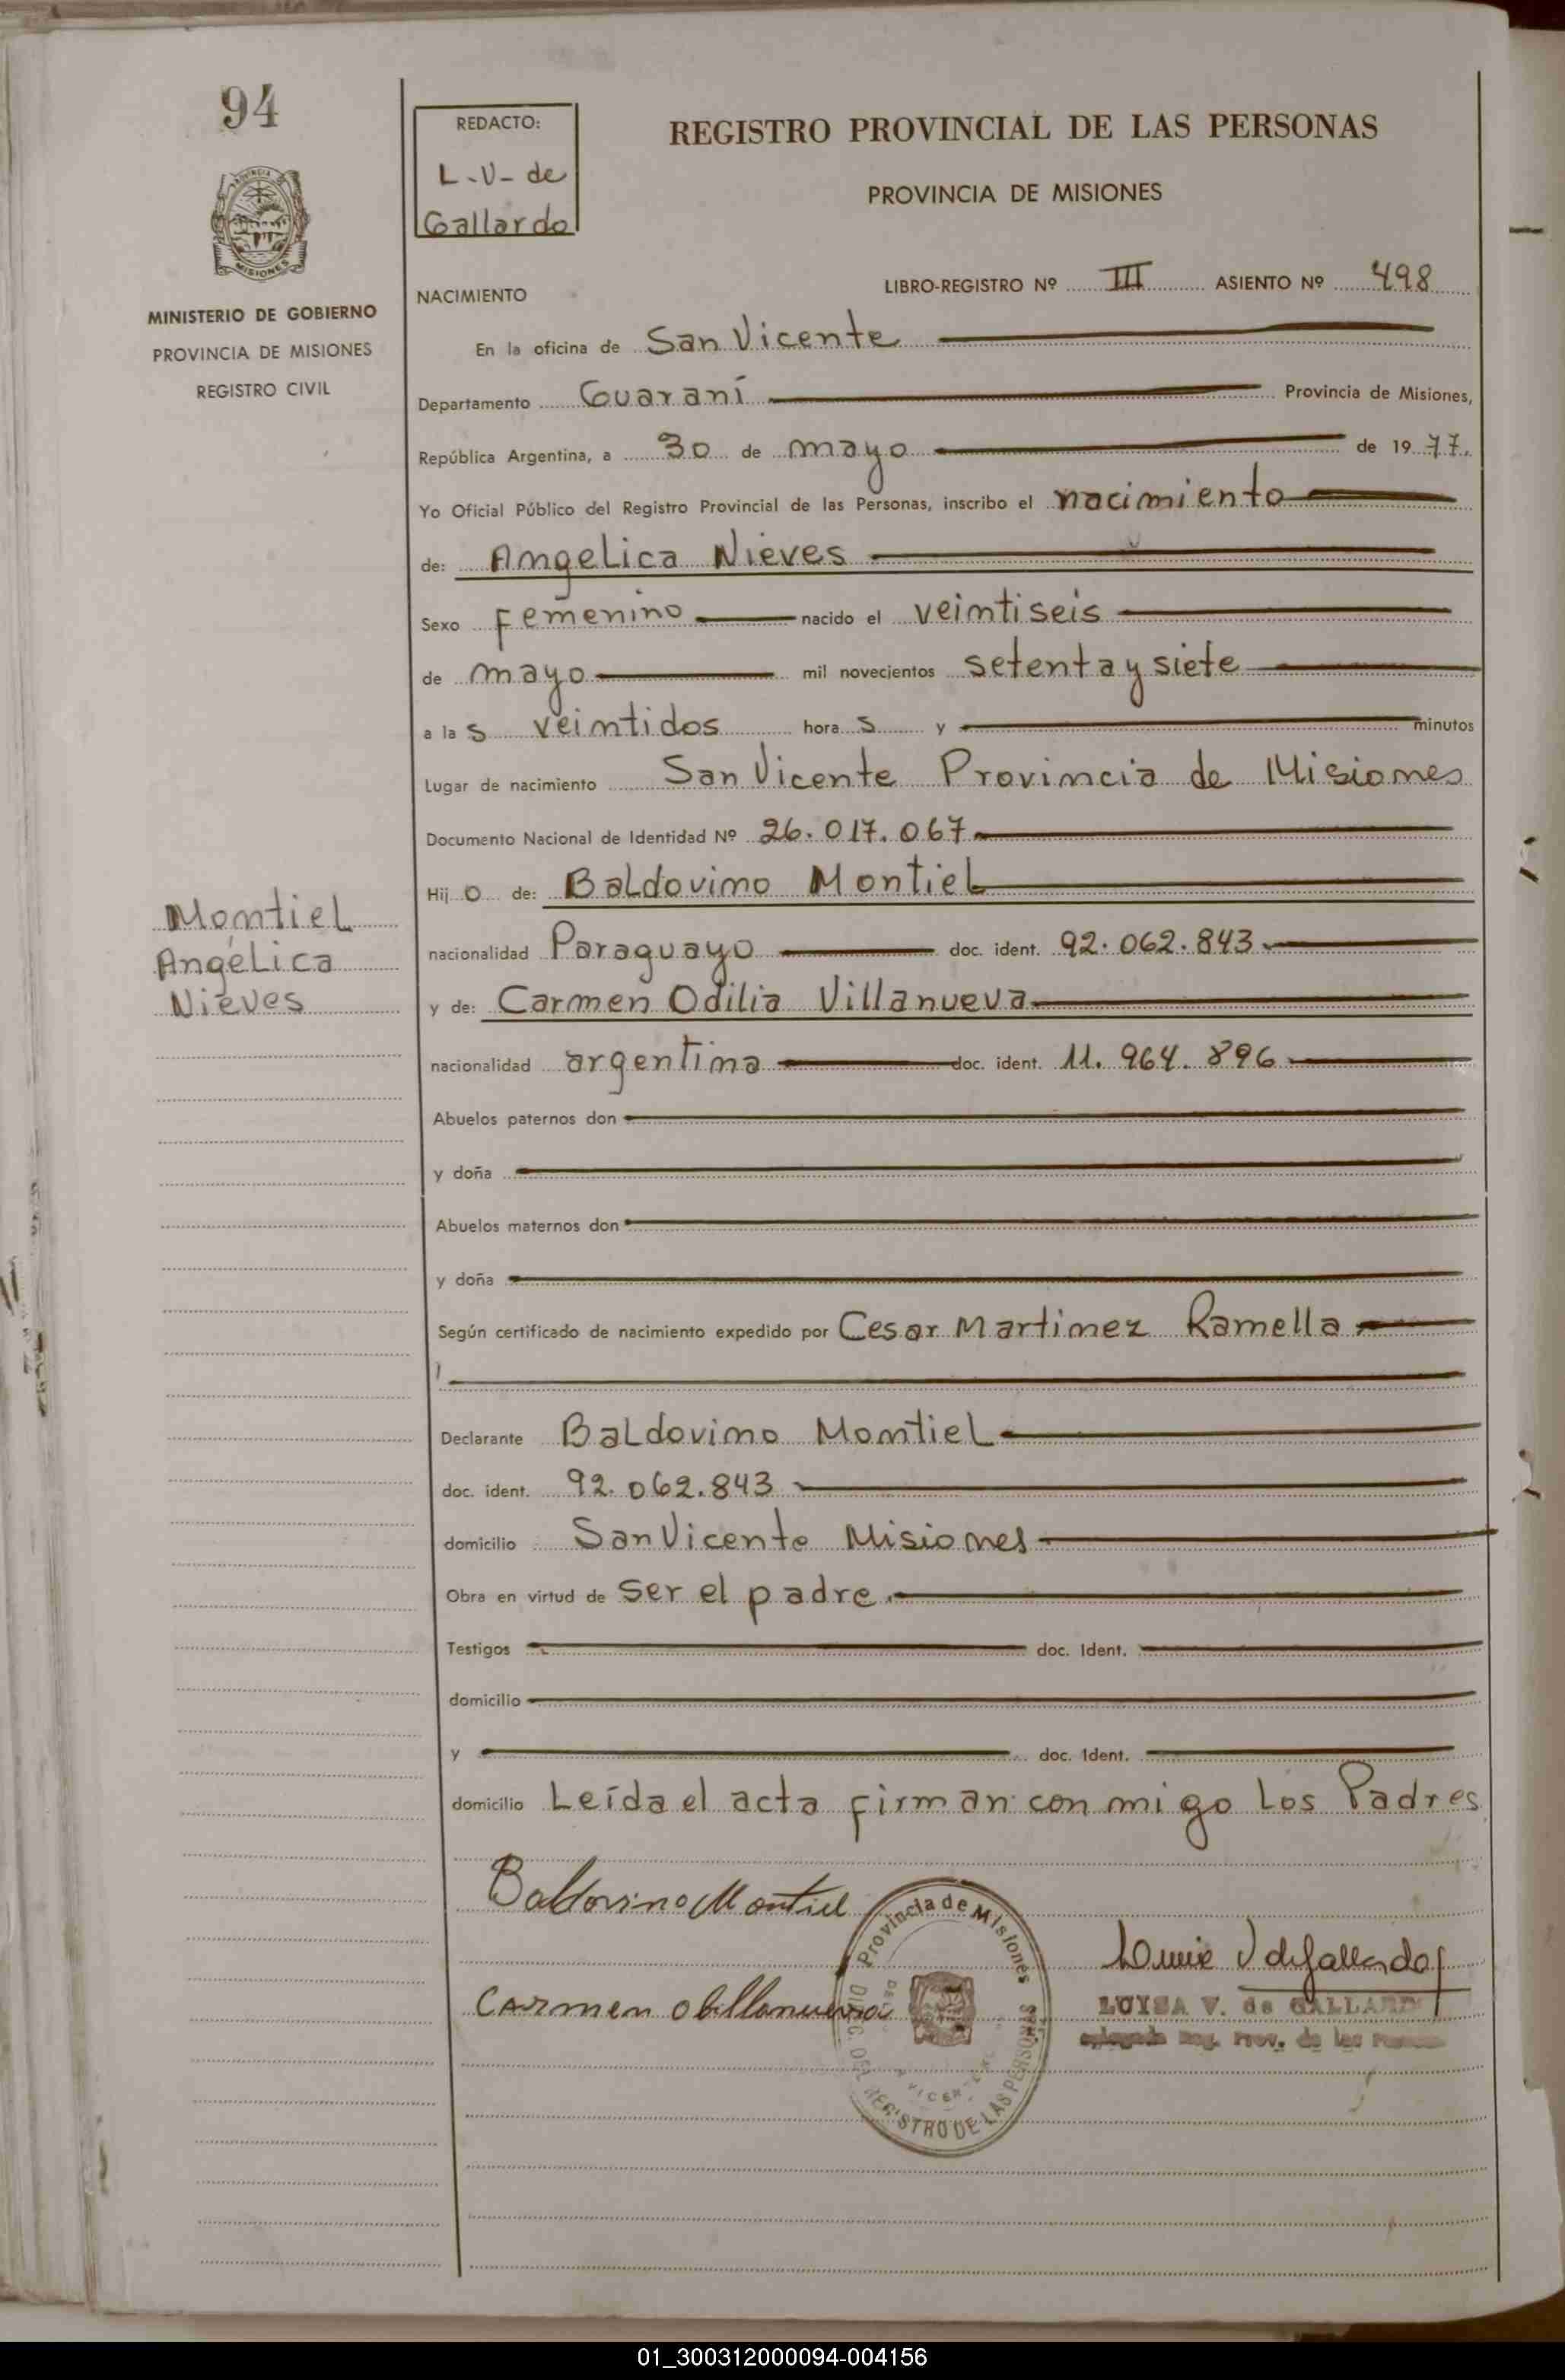 94
REDACTO:
L-V- de
Gallardo
REGISTRO PROVINCIAL DE LAS PERSONAS
PROVINCIA DE MISIONES
PROVINCIA DE
MISIONES
MINISTERIO DE GOBIERNO
PROVINCIA DE MISIONES
REGISTRO CIVIL
NACIMIENTO
LIBRO-REGISTRO Nº III ASIENTO Nº 498
En la oficina de San Vicente
Departamento Guaraní Provincia de Misiones,
República Argentina, a 30 de mayo de 1977.
Yo Oficial Público del Registro Provincial de las Personas, inscribo el nacimiento
de: Angelica Nieves
Sexo Femenino nacido el veintiseis
de mayo mil novecientos setenta y siete
a las veintidos horas y minutos
Lugar de nacimiento San Vicente Provincia de Misiones
Documento Nacional de Identidad Nº 26.017.067
Hijo de: Baldovino Montiel
Montiel
Angélica
Nieves
nacionalidad Paraguayo doc. ident. 92.062.843
y de: Carmen Odilia Villanueva
nacionalidad argentina doc. ident. 11.964.896
Abuelos paternos don
y doña
Abuelos maternos don
y doña
Según certificado de nacimiento expedido por Cesar Martinez Ramella
Declarante Baldovino Montiel
doc. ident. 92.062.843
domicilio San Vicente Misiones
Obra en virtud de ser el padre.
Testigos doc. Ident.
domicilio
y doc. Ident.
domicilio Leída el acta firman conmigo los Padres
Baldovino Montiel
Carmen O Villanueva
Provincia de Misiones
DIREC. DEL REGISTRO DE LAS PERSONAS
V de Gallardo
LUISA V. de GALLARDO
Reg. Prov. de las
01_300312000094-004156